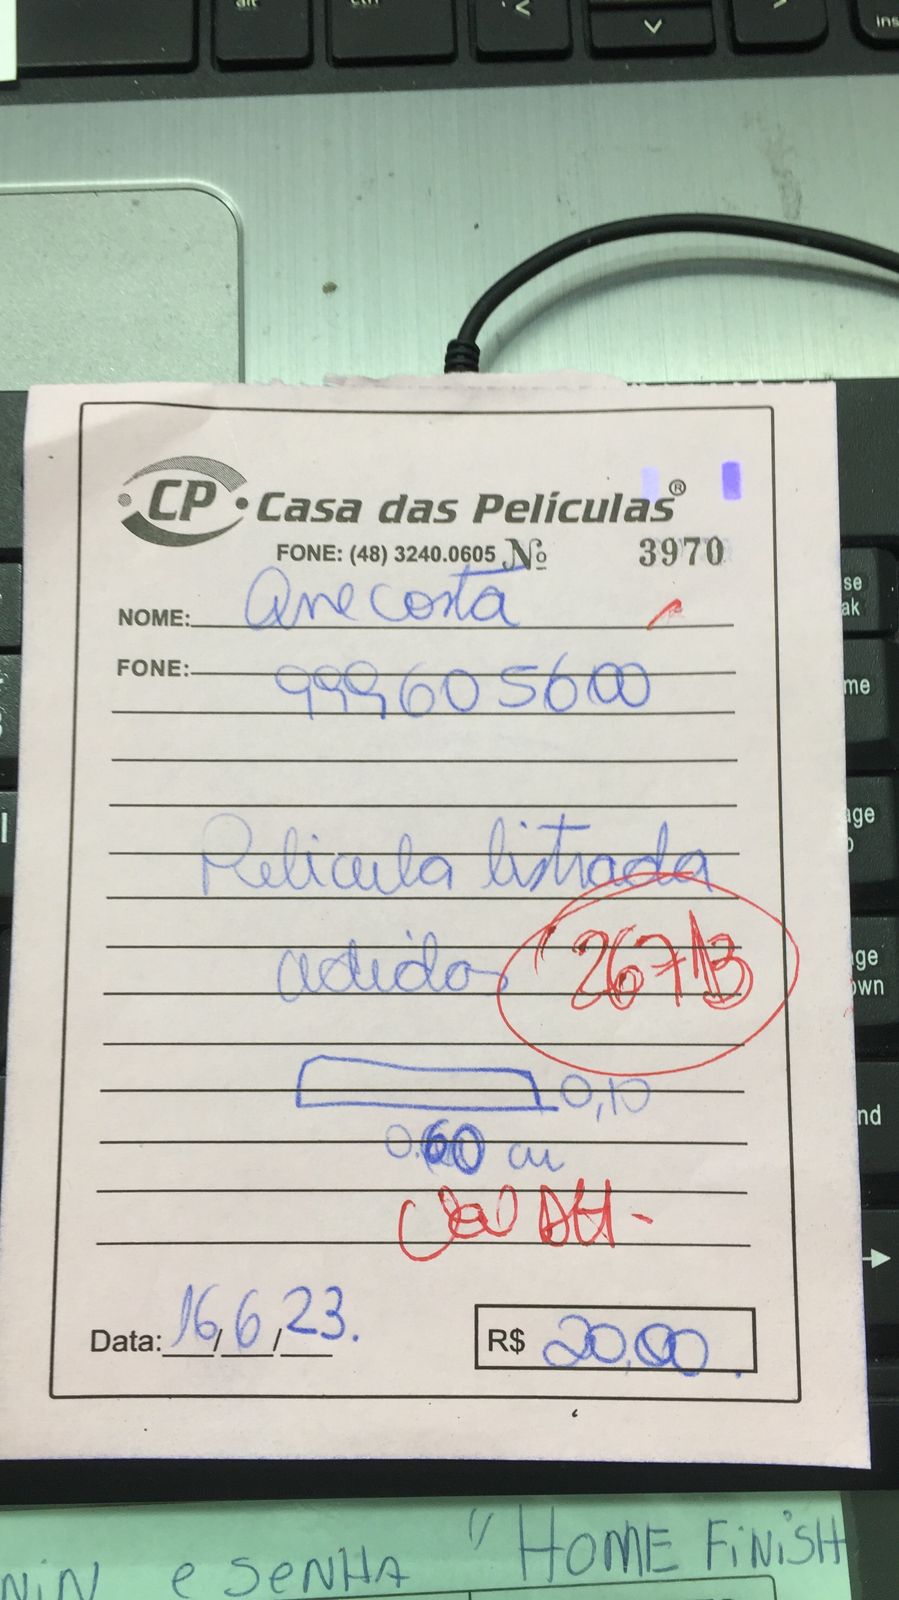 alt
ctrl
ins
CP Casa das Películas®
FONE: (48) 3240.0605 Nº 3970
NOME: Ane Costa
FONE: 999605600
Pelicula listrada
adidas 26713
0,10
0,60 cm
Data: 16/6/23.
R$ 20,00
se
ak
me
age
age
own
nd
NIN e SENHA "HOME FINISH